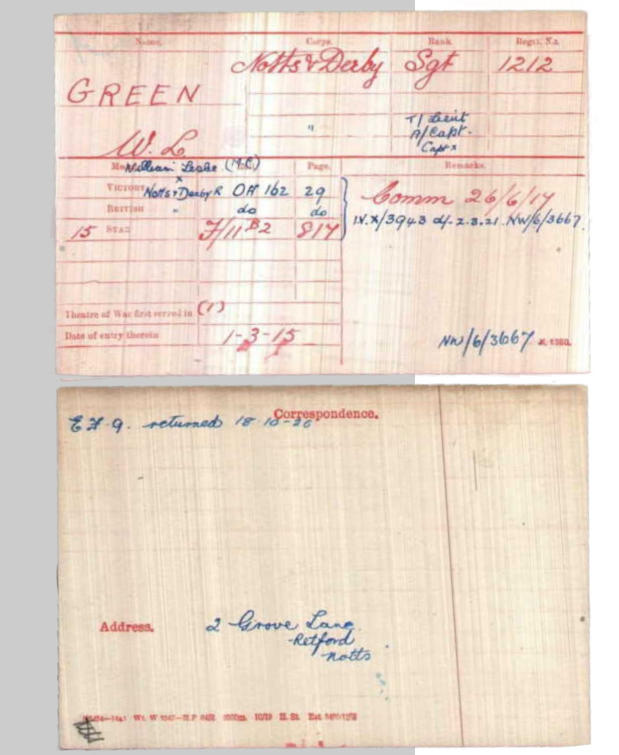 Name. Corps. Rank. Regtl. No.
Notts & Derby Sgt 1212
GREEN
" T/ Lieut
A/Capt.
Capt x
W. L
William Leslie (M.C.) Page. Remarks.
x
VICTORY Notts & Derby R OH 162 29 Comm 26/6/17
BRITISH " do do IV.X/3943 d/ 2.3.21. NW/6/3667
15 STAR F/11 B2 817
Theatre of War first served in (1)
Date of entry therein 1-3-15
NW/6/3667 K. 1380.
Correspondence.
E.F.9. returned 18-10-20
Address. 2 Grove Lane
Retford
Notts